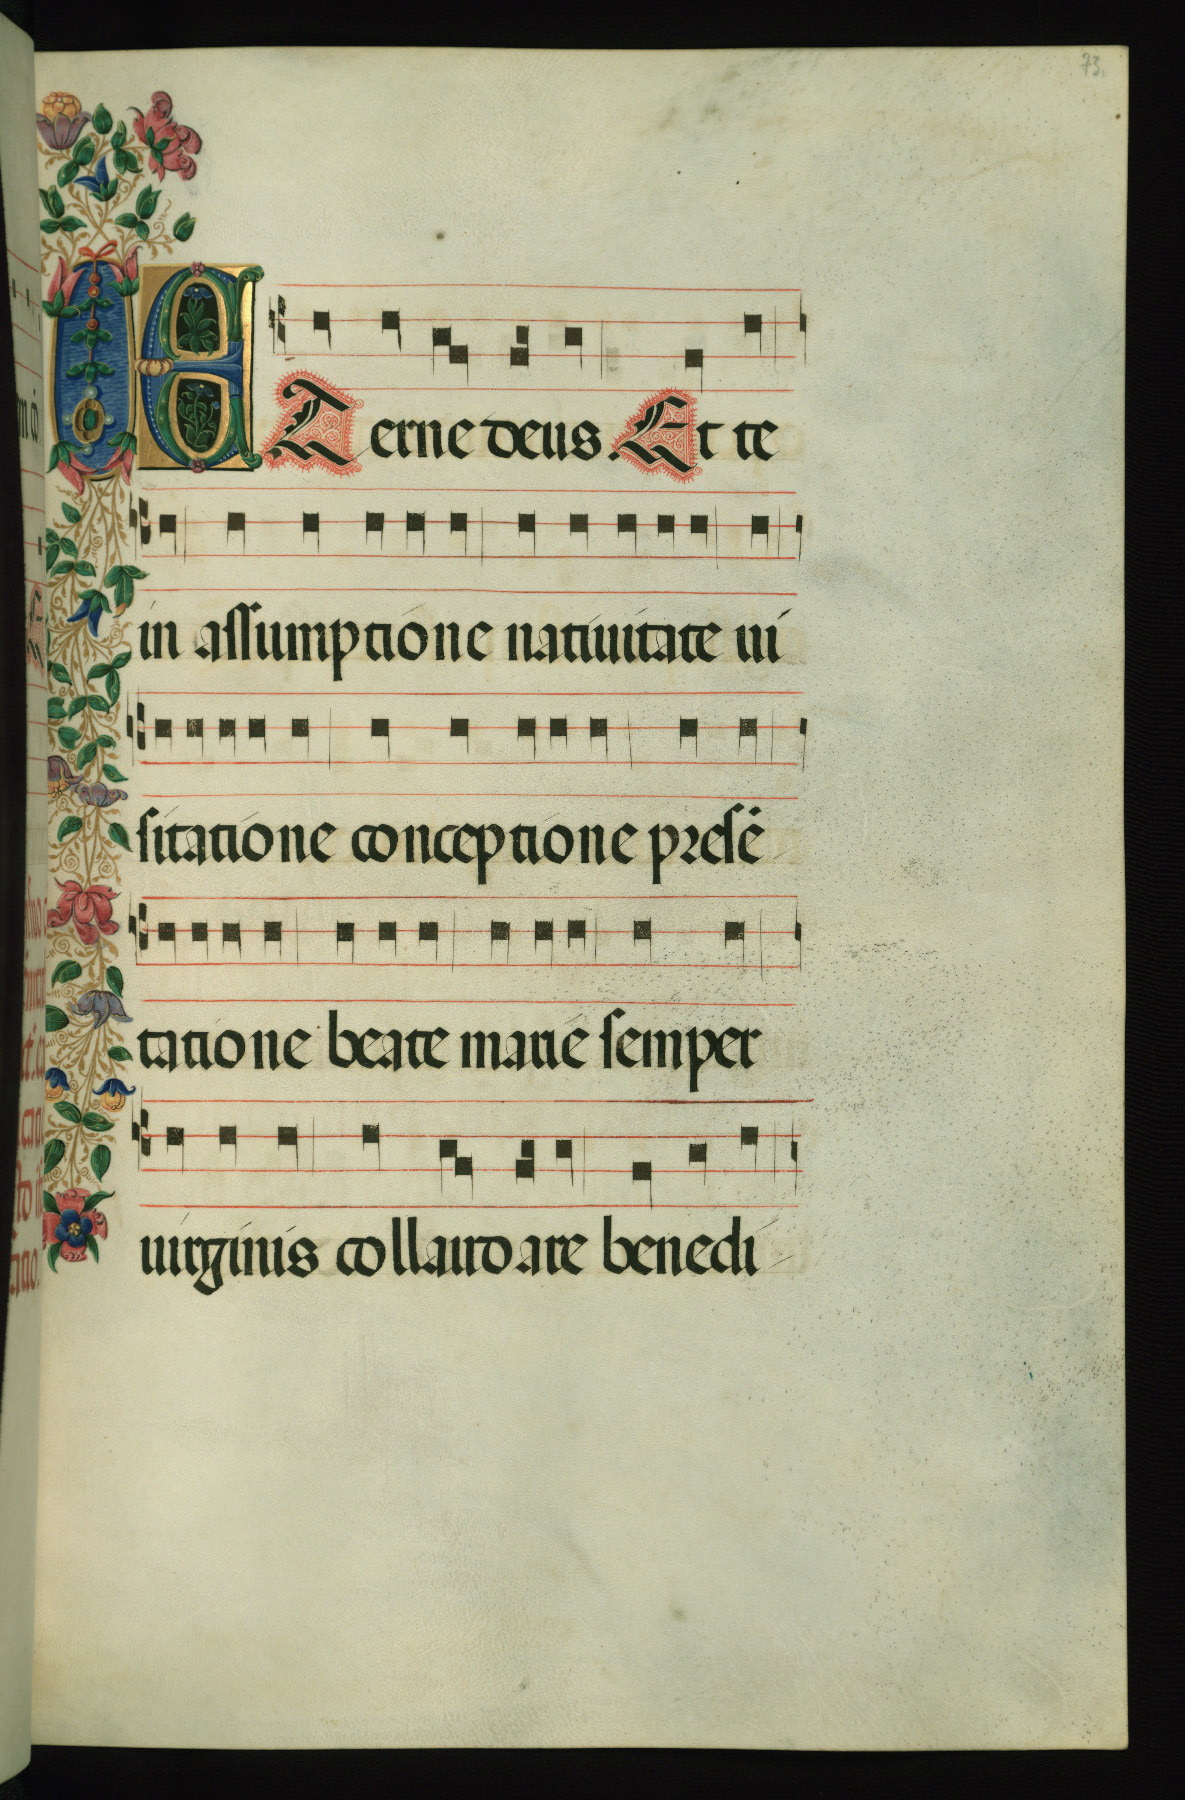 73.
ETerne deus. Et te
in assumptione natiuitate ui
sitatione conceptione presē
tatione beate marie semper
uirginis collaudare benedi